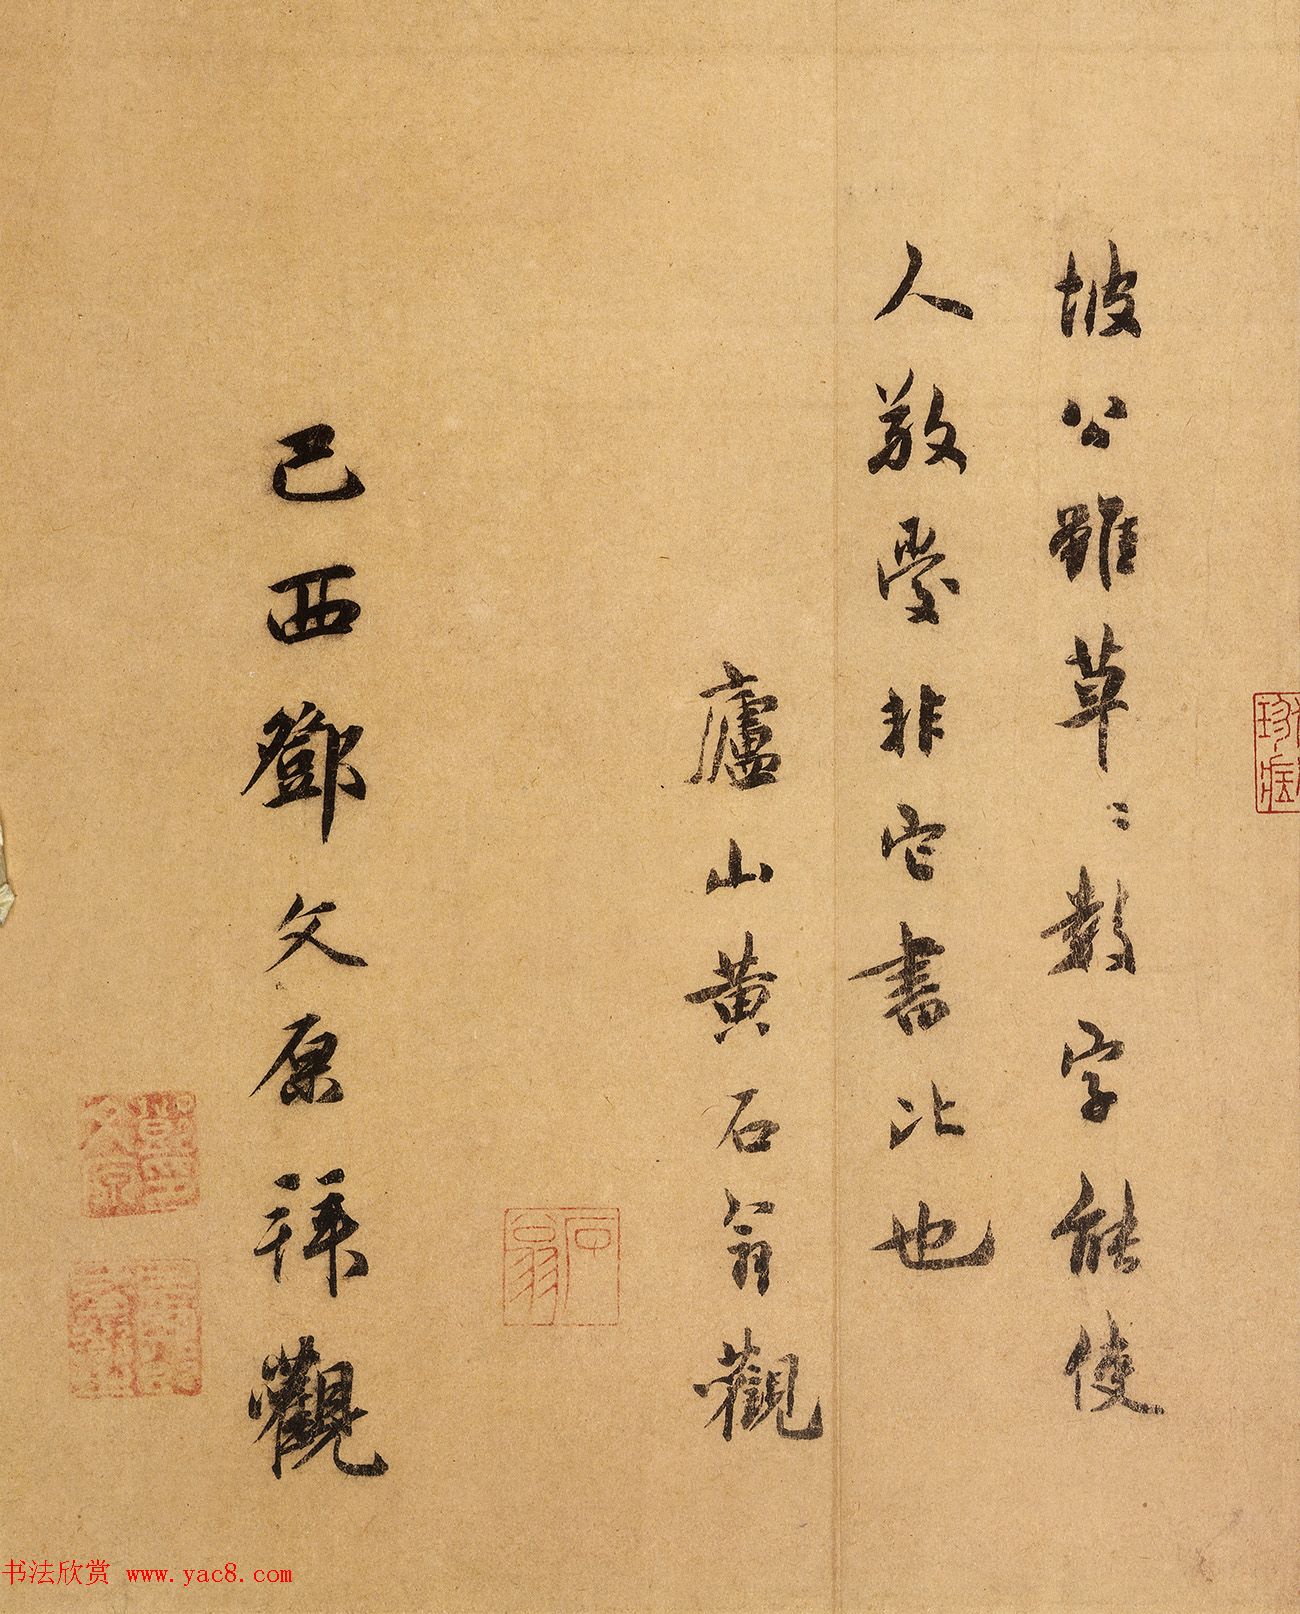 坡公雖草〻數字能使
人敬愛非它書比也
廬山黄石翁觀
石翁
己酉鄧文原拜觀
书法欣赏 www.yac8.com